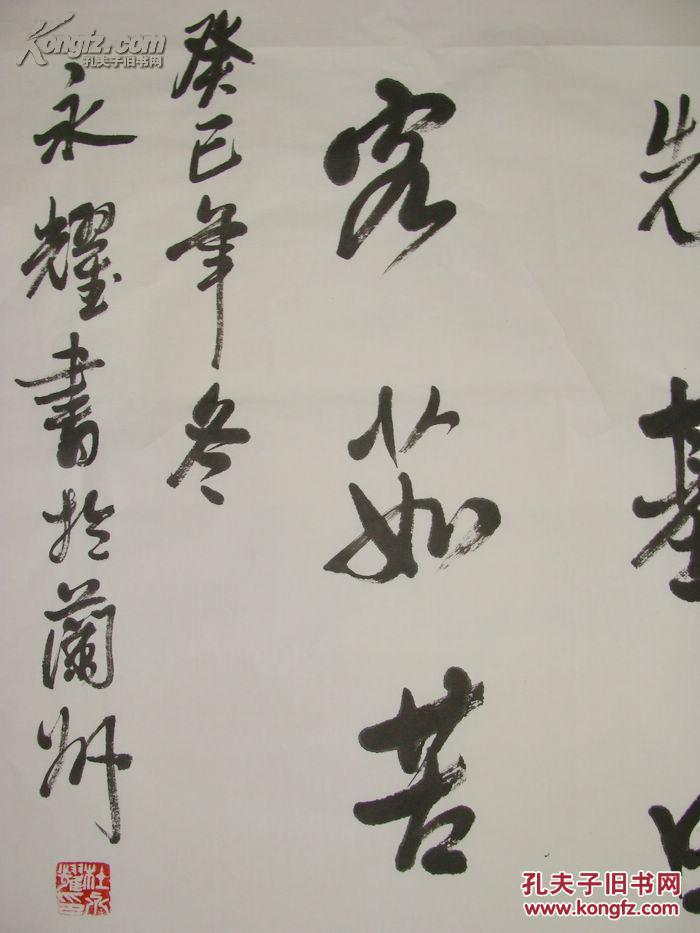 先基
客茹苦
癸巳年冬
永耀書於蘭州
杜永耀印
Kongfz.com
孔夫子旧书网
孔夫子旧书网
www.kongfz.com